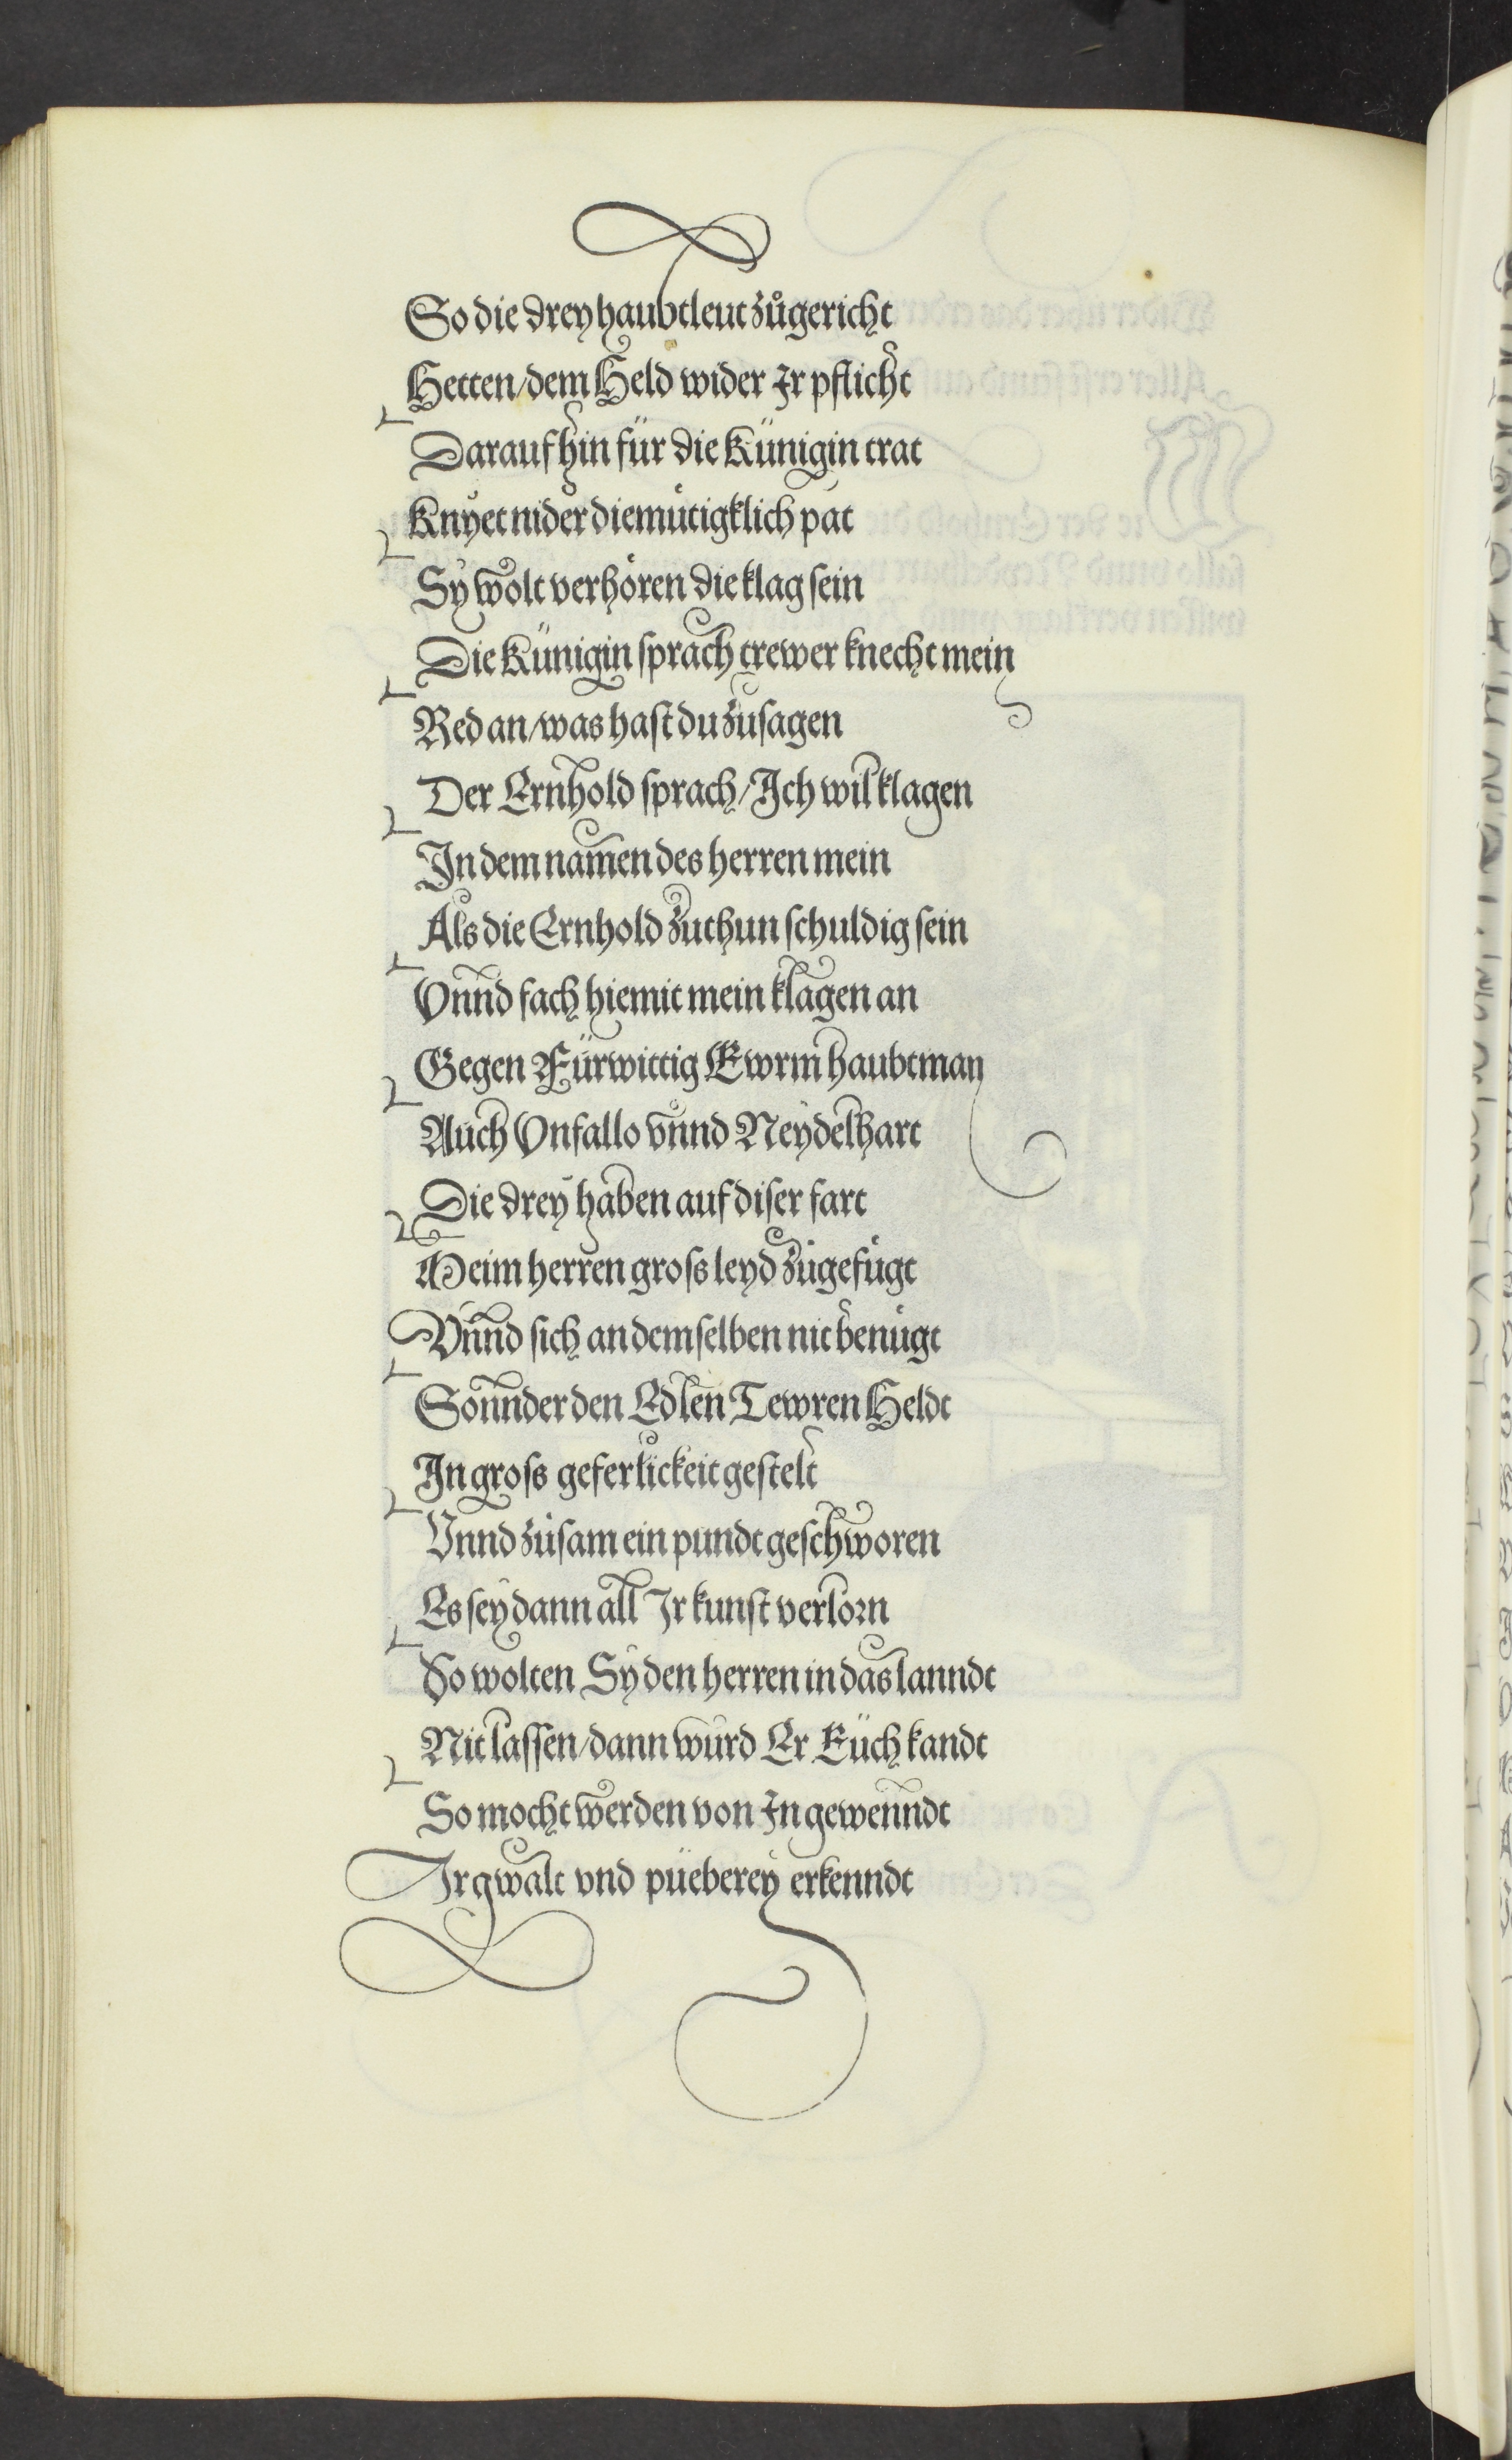 So die drey haubtleut zůgericht
Hetten/dem Held wider Ir pflicht
Darauf hin für die Künigin trat
Knyet nider diemůtigklich pat
Sy wolt verhören die klag sein
Die Künigin sprach trewer knecht mein
Red an/was hast du zusagen
Der Ernhold sprach/Ich wil klagen
In dem namen des herren mein
Als die Ernhold zuthun schuldig sein
Vnnd fach hiemit mein klagen an
Gegen Fürwittig Ewrm haubtman
Auch Vnfallo vnnd Neydelhart
Die drey haben auf diser fart
Meim herren gross leyd zůgefůgt
Vnnd sich an demselben nit benůgt
Sonnder den Edlen Tewren Heldt
In gross geferlickeit gestelt
Vnnd zůsam ein pundt geschworen
Es sey dann all Ir kunst verlorn
So wolten Sy den herren in das lanndt
Nit lassen/dann wurd Er Eüch kandt
So mocht werden von In gewenndt
Ir gwalt vnd püeberey erkenndt